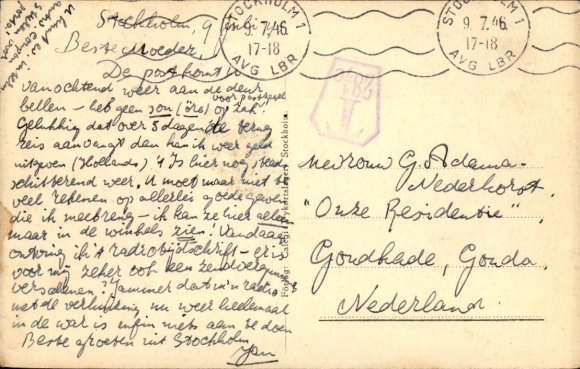 Stockholm, 9 Juli '46
Beste Moeder,
De post komt
vanochtend weer aan de deur
bellen – heb geen (öre) op zak!
voor postzegel
Gelukkig dat over 5 dagen de terug
reis aanvangt dan kan ik weer geld
uitgeven (Hollands)! 't Is hier nog steeds
schitterend weer. U moet maar niet te
veel rekenen op allerlei goede gaven
die ik meebreng – ik kan ze hier alleen
maar in de winkels zien! Vandaag
ontving ik 't radiotijdschrift – er is
voor mij zeker ook een zendvergunning
verschenen? Jammer dat m'n radio
met de verhuizing nu weer heelemaal
in de war is enfin niets aan te doen
Beste groeten uit Stockholm
STOCKHOLM 1
9. 7. 46.
17-18
AVG LBR
STOCKHOLM 1
9. 7. 46.
17-18
AVG LBR
Mevrouw G. Adama-
Nederhorst
"Onze Residentie",
Goudkade, Gouda.
Nederland.
Stockholm.